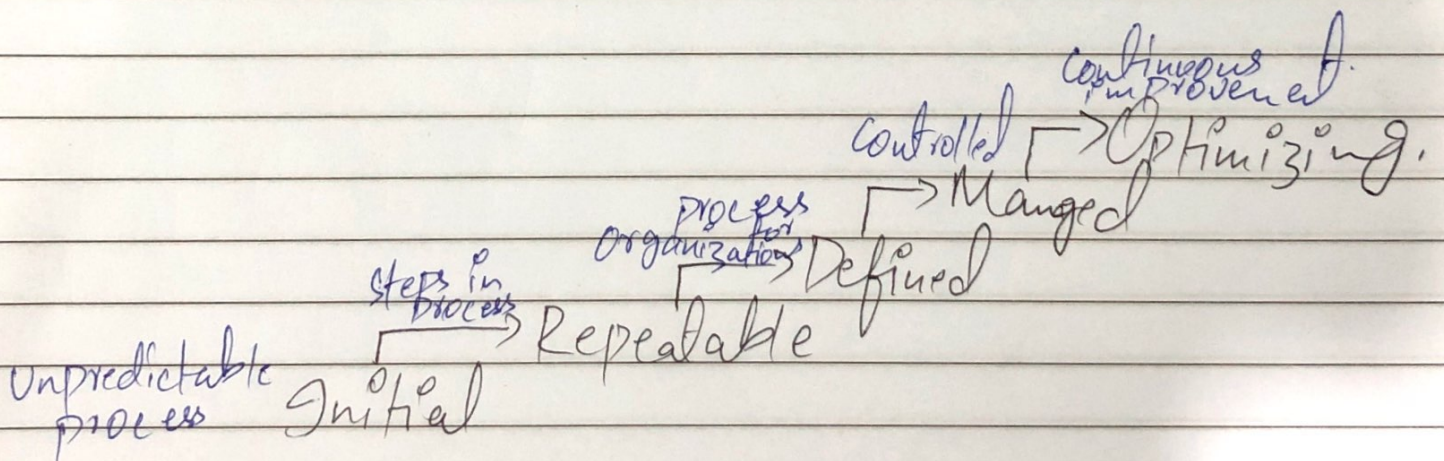 Continuous
improvement.
Controlled
Optimizing.
Manged
process
for
organization
Defined
steps in
process
Repeatable
Unpredictable
process
Initial